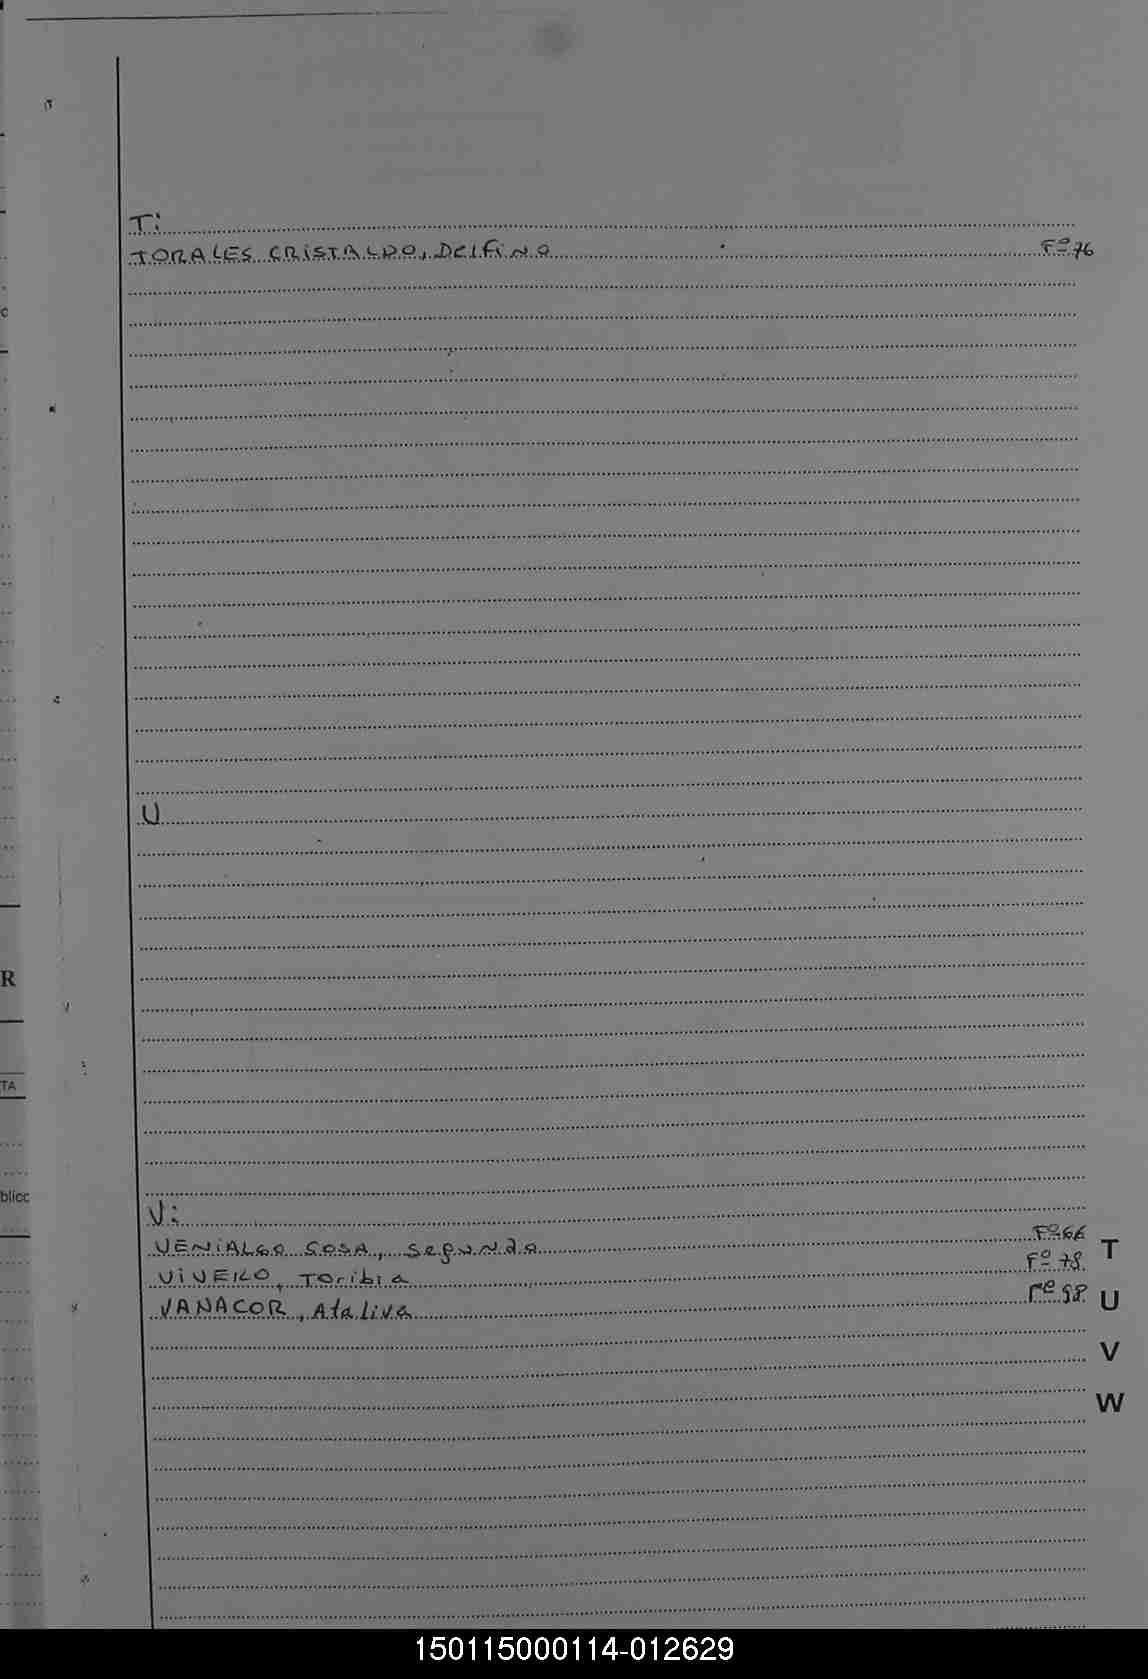 T:
TORALES CRISTALDO, Delfino Fº 76
U
V:
VENIALGO SOSA, Segundo Fº 66
VIVERO, Toribia Fº 78
VANACOR, Ataliva Fº 98
T
U
V
W
R
TA
blicc
150115000114-012629